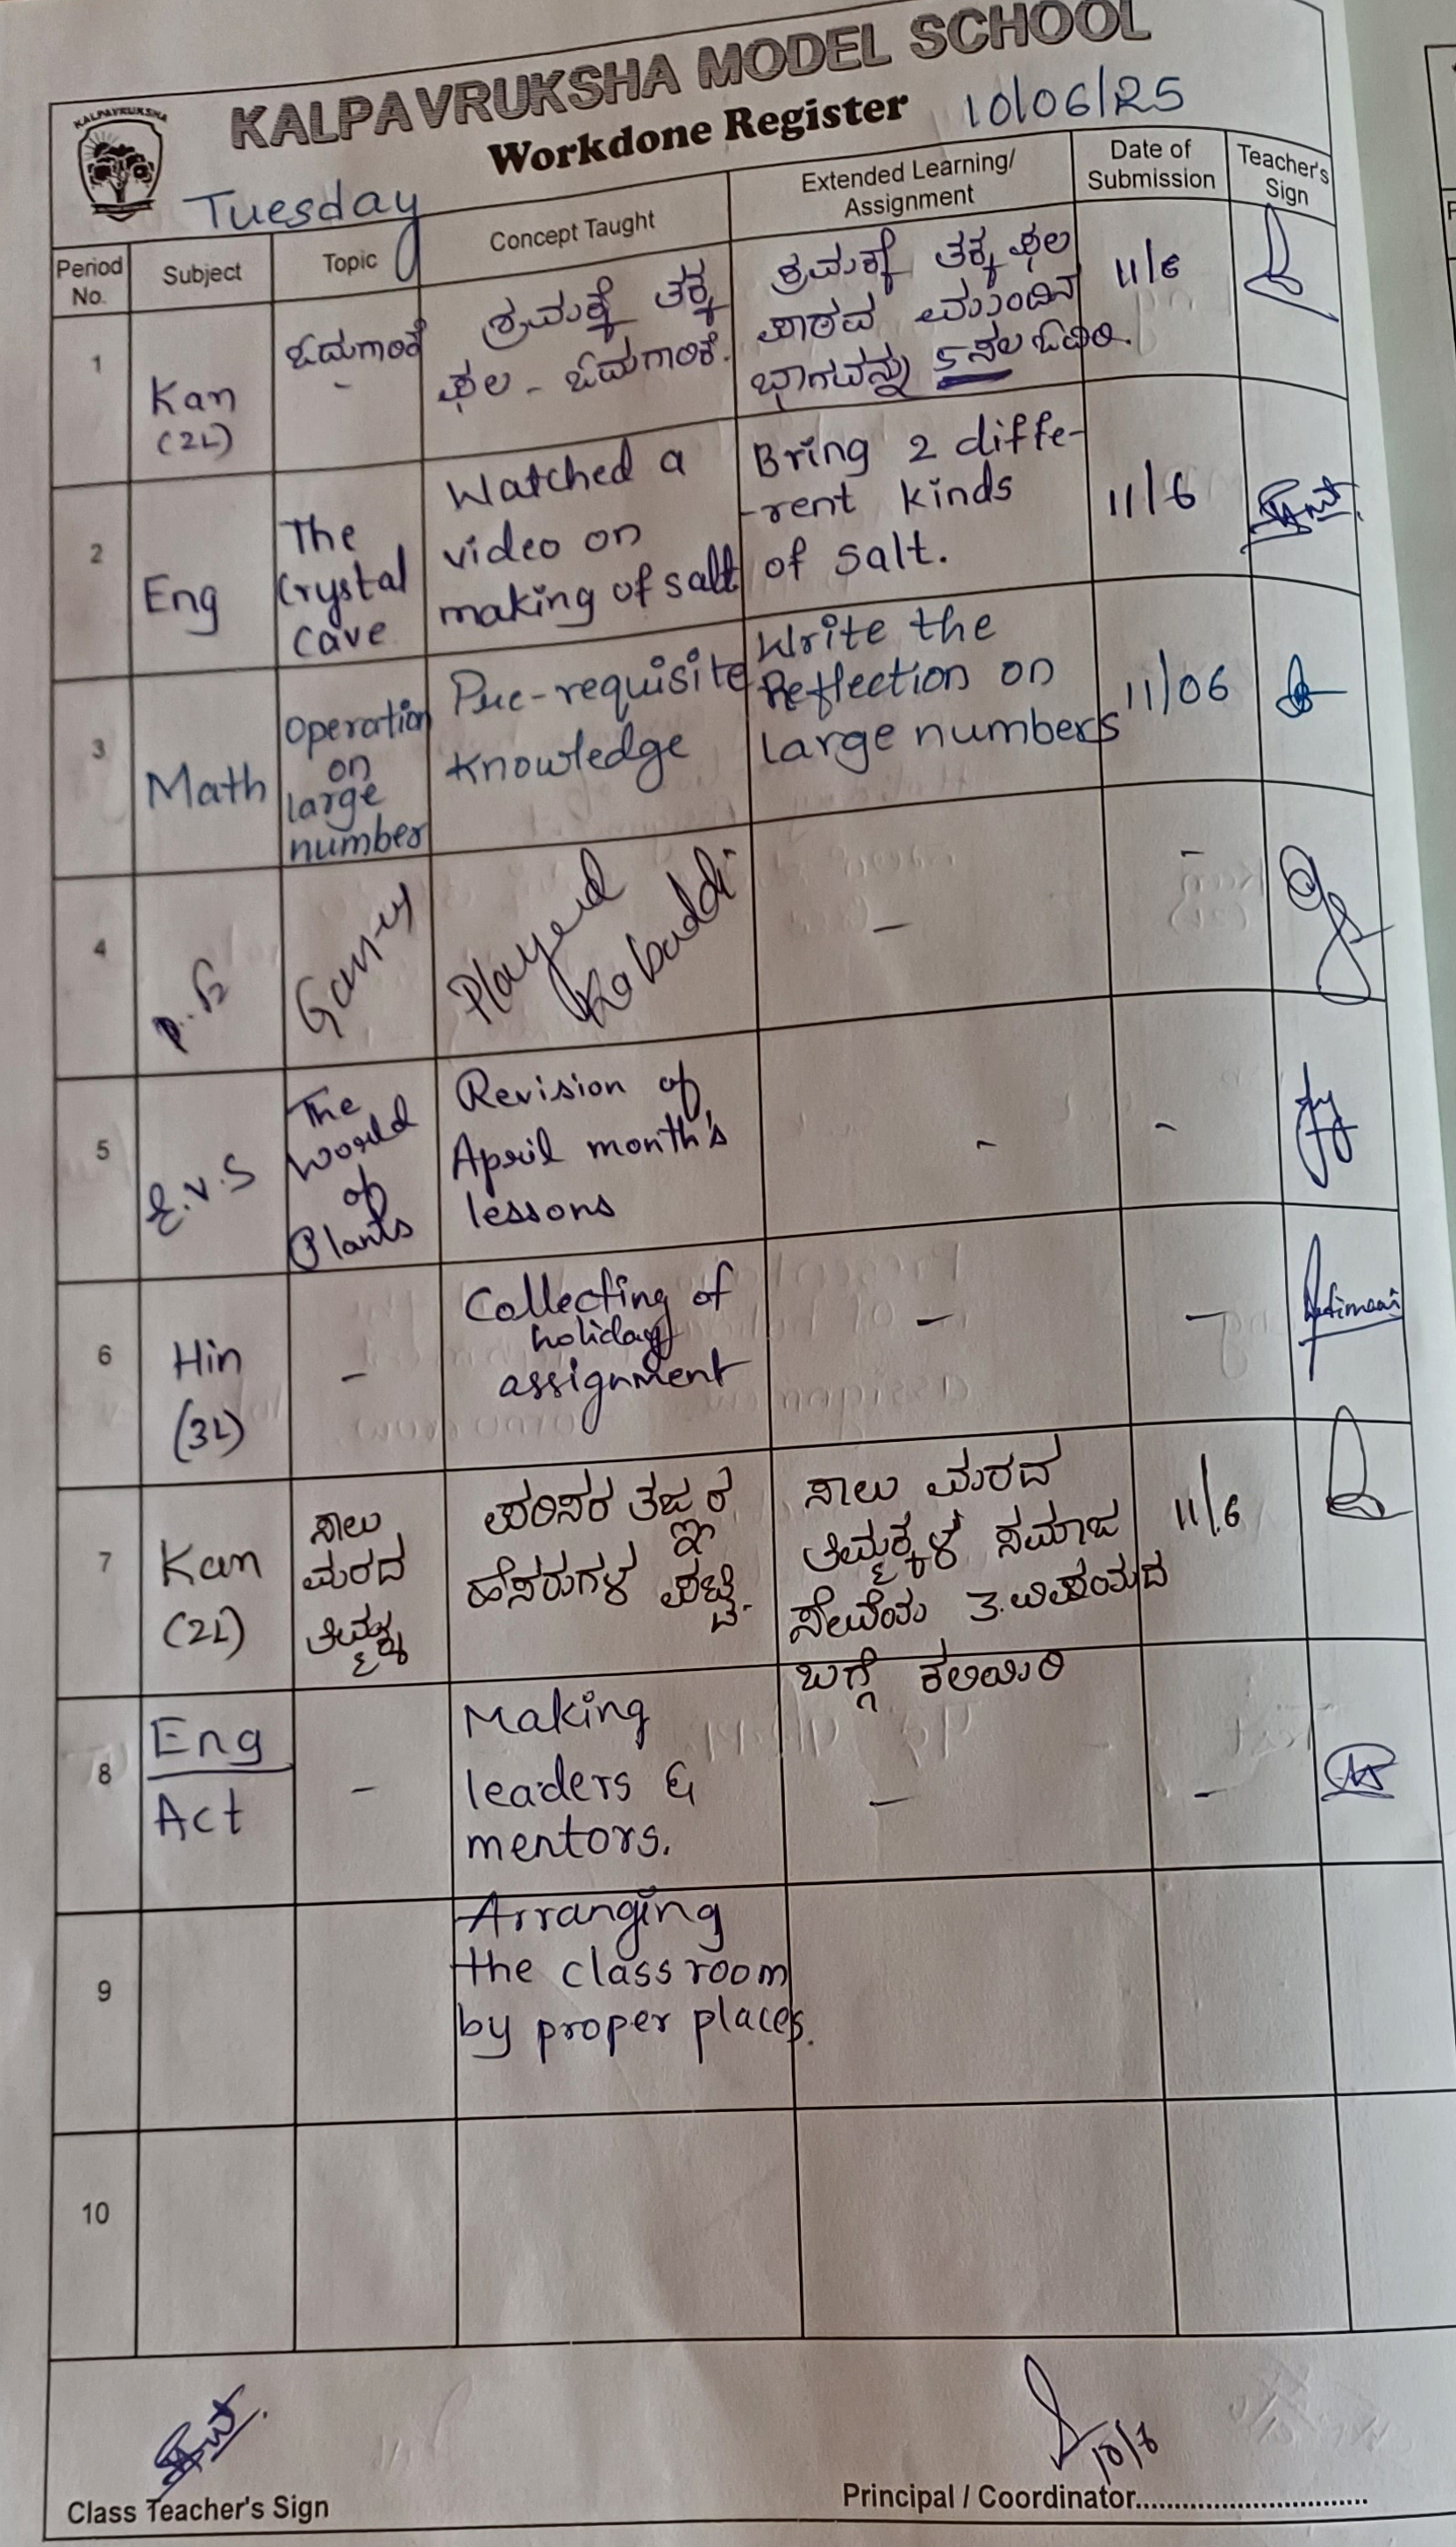 KALPAVRUKSHA MODEL SCHOOL
KALPAVRUKSHA
Workdone Register 10/06/25
Tuesday
Period No.
Subject
Topic
Concept Taught
Extended Learning/
Assignment
Date of
Submission
Teacher's
Sign
1
Kan
(2L)
ಓದುಗಾರಿಕೆ
-
ಶ್ರಮಕ್ಕೆ ತಕ್ಕ
ಫಲ - ಓದುಗಾರಿಕೆ.
ಶ್ರಮಕ್ಕೆ ತಕ್ಕ ಫಲ
ಪಾಠದ ಮುಂದಿನ
ಭಾಗವನ್ನು 5 ಸಲ ಓದಿರಿ.
11/6
2
Eng
The
Crystal
Cave
Watched a
video on
making of salt
Bring 2 diffe-
-rent kinds
of salt.
11/6
3
Math
Operation
on
large
number
Pre-requisite
Knowledge
Write the
Reflection on
large numbers
11/06
4
P.E
Games
Played
Kabaddi
-
-
5
E.V.S
The
World
of
Plants
Revision of
April month's
lessons
-
-
6
Hin
(3L)
-
Collecting of
holiday
assignment
-
-
7
Kan
(2L)
ಸಾಲು
ಮರದ
ತಿಮ್ಮಕ್ಕ
ಪರಿಸರ ತಜ್ಞರ
ಹೆಸರುಗಳ ಪಟ್ಟಿ.
ಸಾಲು ಮರದ
ತಿಮ್ಮಕ್ಕಳ ಸಮಾಜ
ಸೇವೆಯ 3. ವಿಷಯದ
ಬಗ್ಗೆ ಕಲಿಯಿರಿ
11/6
8
Eng
Act
-
Making
leaders &
mentors.
-
-
9
Arranging
the class room
by proper places.
10
10/6
Class Teacher's Sign
Principal / Coordinator..............................